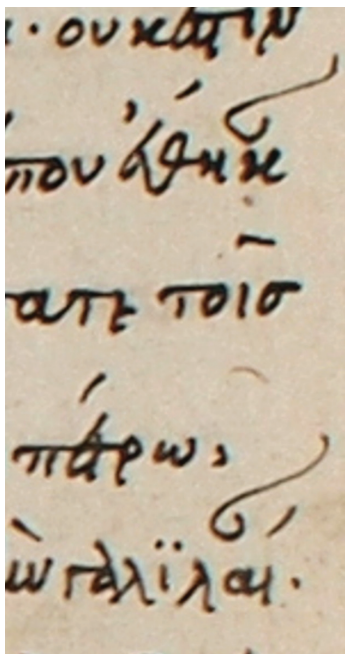 · ουκ εστιν
που ἔθηκαν
ατε τοῖσ
πέτρω,
ὴν γαλϊλαίαν·